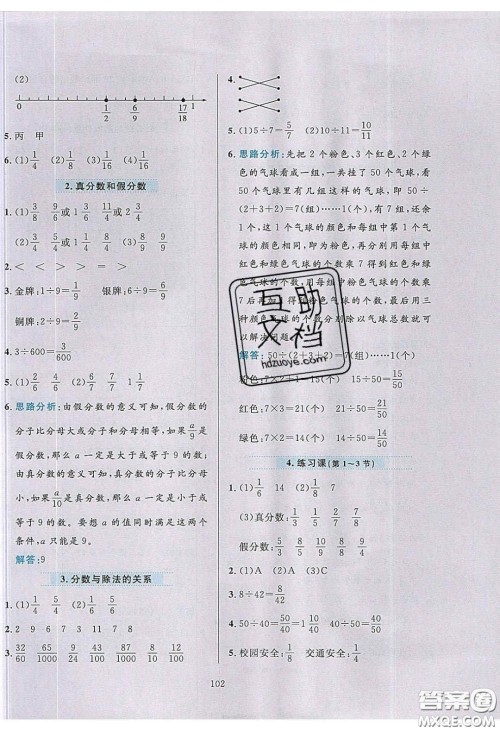 (2)
0 1/2 6/9 17/18 1
5. 丙 甲
6. (1) 1/4 (2) 1/8 (3) 1/6 (4) 1/4
2. 真分数和假分数
1. (1) 3/8 9/6 或 1 3/6 11/4 或 2 3/4
(2) 3/9 4/3 或 1 1/3 (3) 1/8 9/6
2. < < > = >
3. 金牌: 1÷9=1/9 银牌: 6÷9=6/9
铜牌: 2÷9=2/9
4. 3÷600=3/600
5. (1) 1/6 (2) 1/5 (3) 1/8 (4) 1/2
6. 思路分析: 由假分数的意义可知, 假分数的
分子比分母大或分子和分母相等, 由 a/9 是
假分数, 那么 a 一定是大于或等于 9 的数;
由真分数的意义可知, 真分数的分子比分母
小, 由 a/10 是真分数, 那么 a 一定是小于或
等于 9 的数。要想 a 的值同时满足这两个
条件, a 只能是 9。
解答: 9
3. 分数与除法的关系
1. (1) 1/4 5/4 (2) 1/5 4/5
2. 2 9 6 7 3 7 11 8
3. 32/60 65/1000 34/24 43/100 87/1000 8/10 10/100
4.
5. (1) 5÷7=5/7 (2) 10÷11=10/11
6. 思路分析: 先把 2 个粉色、3 个红色、2 个绿
色的气球看成一组, 一共挂了 50 个气球, 看
50 个气球里有几组这样的气球, 即 50÷
(2+3+2)=7(组)……1(个), 有 7 组, 还剩
1 个, 这 1 个气球的颜色和每组中第 1 个气
球的颜色相同, 即为粉色, 再用每组中
红色和绿色气球的个数乘 7 得到红色
和绿色气球的个数, 粉色气球的个数乘
7 后再加 1 得到粉色气球的个数, 最后用三
种颜色气球的个数分别除以气球总数就可
以解决问题。
解答: 50÷(2+3+2)=7(组)……1(个)
粉色: 7×2+1=15(个) 15÷50=15/50
红色: 7×3=21(个) 21÷50=21/50
绿色: 7×2=14(个) 14÷50=14/50
4. 练习课(第 1~3 节)
1. (1) 1/6 14 (2) 1/3 7
(3) 真分数: 1/6 2/6 3/6 4/6 5/6
假分数: 6/6 7/6 8/6
3. 50÷40=50/40
4. 8÷42=8/42
5. 校园安全: 1/8 交通安全: 1/4
102
互助文档
hdzuoye.com
答案圈
MXQE.COM